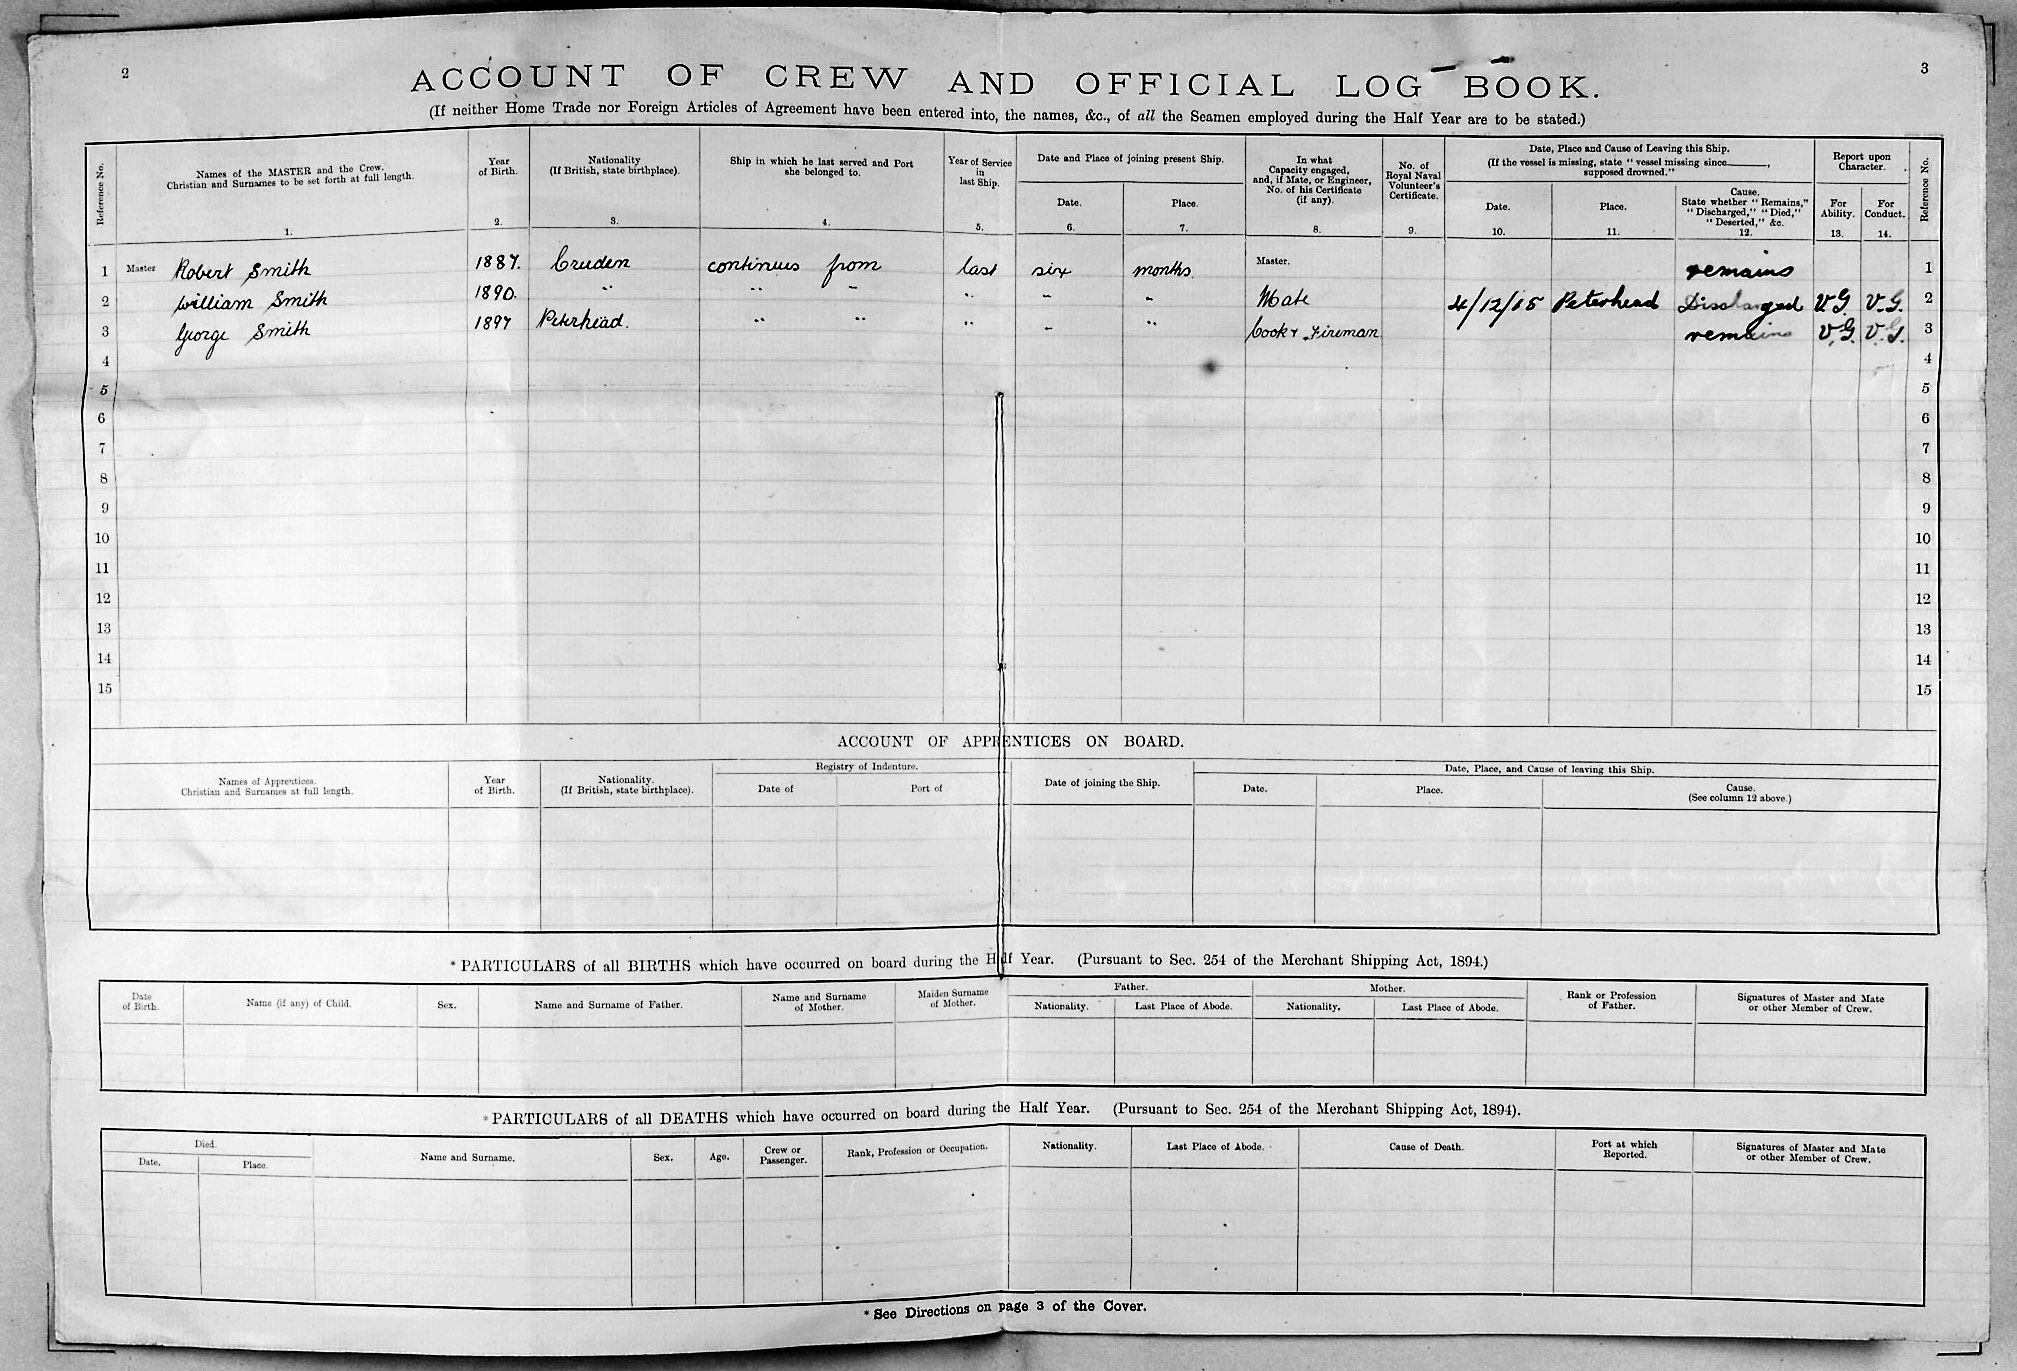 2
3
ACCOUNT OF CREW AND OFFICIAL LOG BOOK.
(If neither Home Trade nor Foreign Articles of Agreement have been entered into, the names, &c., of all the Seamen employed during the Half Year are to be stated.)
Reference No.
Names of the MASTER and the Crew.
Christian and Surnames to be set forth at full length.
1.
Year of Birth.
2.
Nationality
(If British, state birthplace).
3.
Ship in which he last served and Port
she belonged to.
4.
Year of Service
in
last Ship.
5.
Date and Place of joining present Ship.
Date.
6.
Place.
7.
In what
Capacity engaged,
and, if Mate, or Engineer,
No. of his Certificate
(if any).
8.
No. of
Royal Naval
Volunteer's
Certificate.
9.
Date, Place and Cause of Leaving this Ship.
(If the vessel is missing, state "vessel missing since ———,
supposed drowned."
Date.
10.
Place.
11.
Cause.
State whether "Remains,"
"Discharged," "Died,"
"Deserted," &c.
12.
Report upon
Character.
For
Ability.
13.
For
Conduct.
14.
Reference No.
1 Master Robert Smith 1887. Cruden continues from last six months Master. remains 1
2 William Smith 1890. " " " " " " Mate 4/12/15 Peterhead Discharged V.G. V.G. 2
3 George Smith 1897 Peterhead. " " " " " Cook & Fireman remains V.G. V.G. 3
4 4
5 5
6 6
7 7
8 8
9 9
10 10
11 11
12 12
13 13
14 14
15 15
ACCOUNT OF APPRENTICES ON BOARD.
Names of Apprentices.
Christian and Surnames at full length.
Year
of Birth.
Nationality.
(If British, state birthplace).
Registry of Indenture.
Date of
Port of
Date of joining the Ship.
Date, Place, and Cause of leaving this Ship.
Date.
Place.
Cause.
(See column 12 above.)
* PARTICULARS of all BIRTHS which have occurred on board during the Half Year. (Pursuant to Sec. 254 of the Merchant Shipping Act, 1894.)
Date
of Birth.
Name (if any) of Child.
Sex.
Name and Surname of Father.
Name and Surname
of Mother.
Maiden Surname
of Mother.
Father.
Nationality.
Last Place of Abode.
Mother.
Nationality.
Last Place of Abode.
Rank or Profession
of Father.
Signatures of Master and Mate
or other Member of Crew.
* PARTICULARS of all DEATHS which have occurred on board during the Half Year. (Pursuant to Sec. 254 of the Merchant Shipping Act, 1894).
Died.
Date.
Place.
Name and Surname.
Sex.
Age.
Crew or
Passenger.
Rank, Profession or Occupation.
Nationality.
Last Place of Abode.
Cause of Death.
Port at which
Reported.
Signatures of Master and Mate
or other Member of Crew.
* See Directions on page 3 of the Cover.